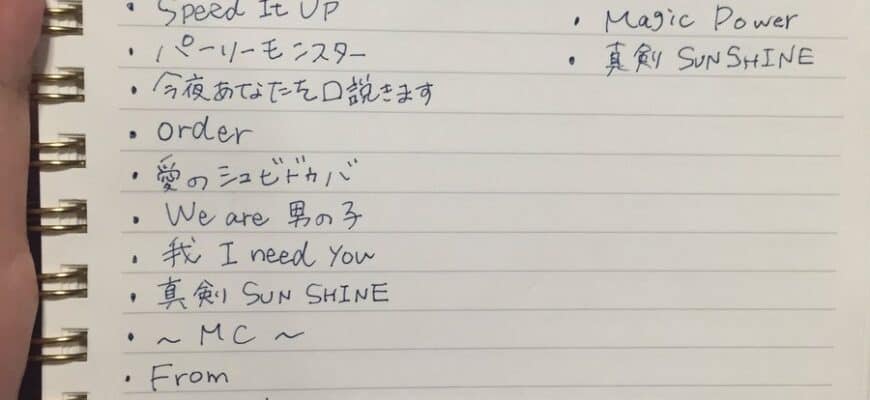 ・Speed It UP
・パーリーモンスター
・今夜あなたを口説きます
・order
・愛のシュビドゥバ
・We are 男の子
・我 I need You
・真剣 SUN SHINE
・〜 MC 〜
・From
・Magic Power
・真剣 SUNSHINE